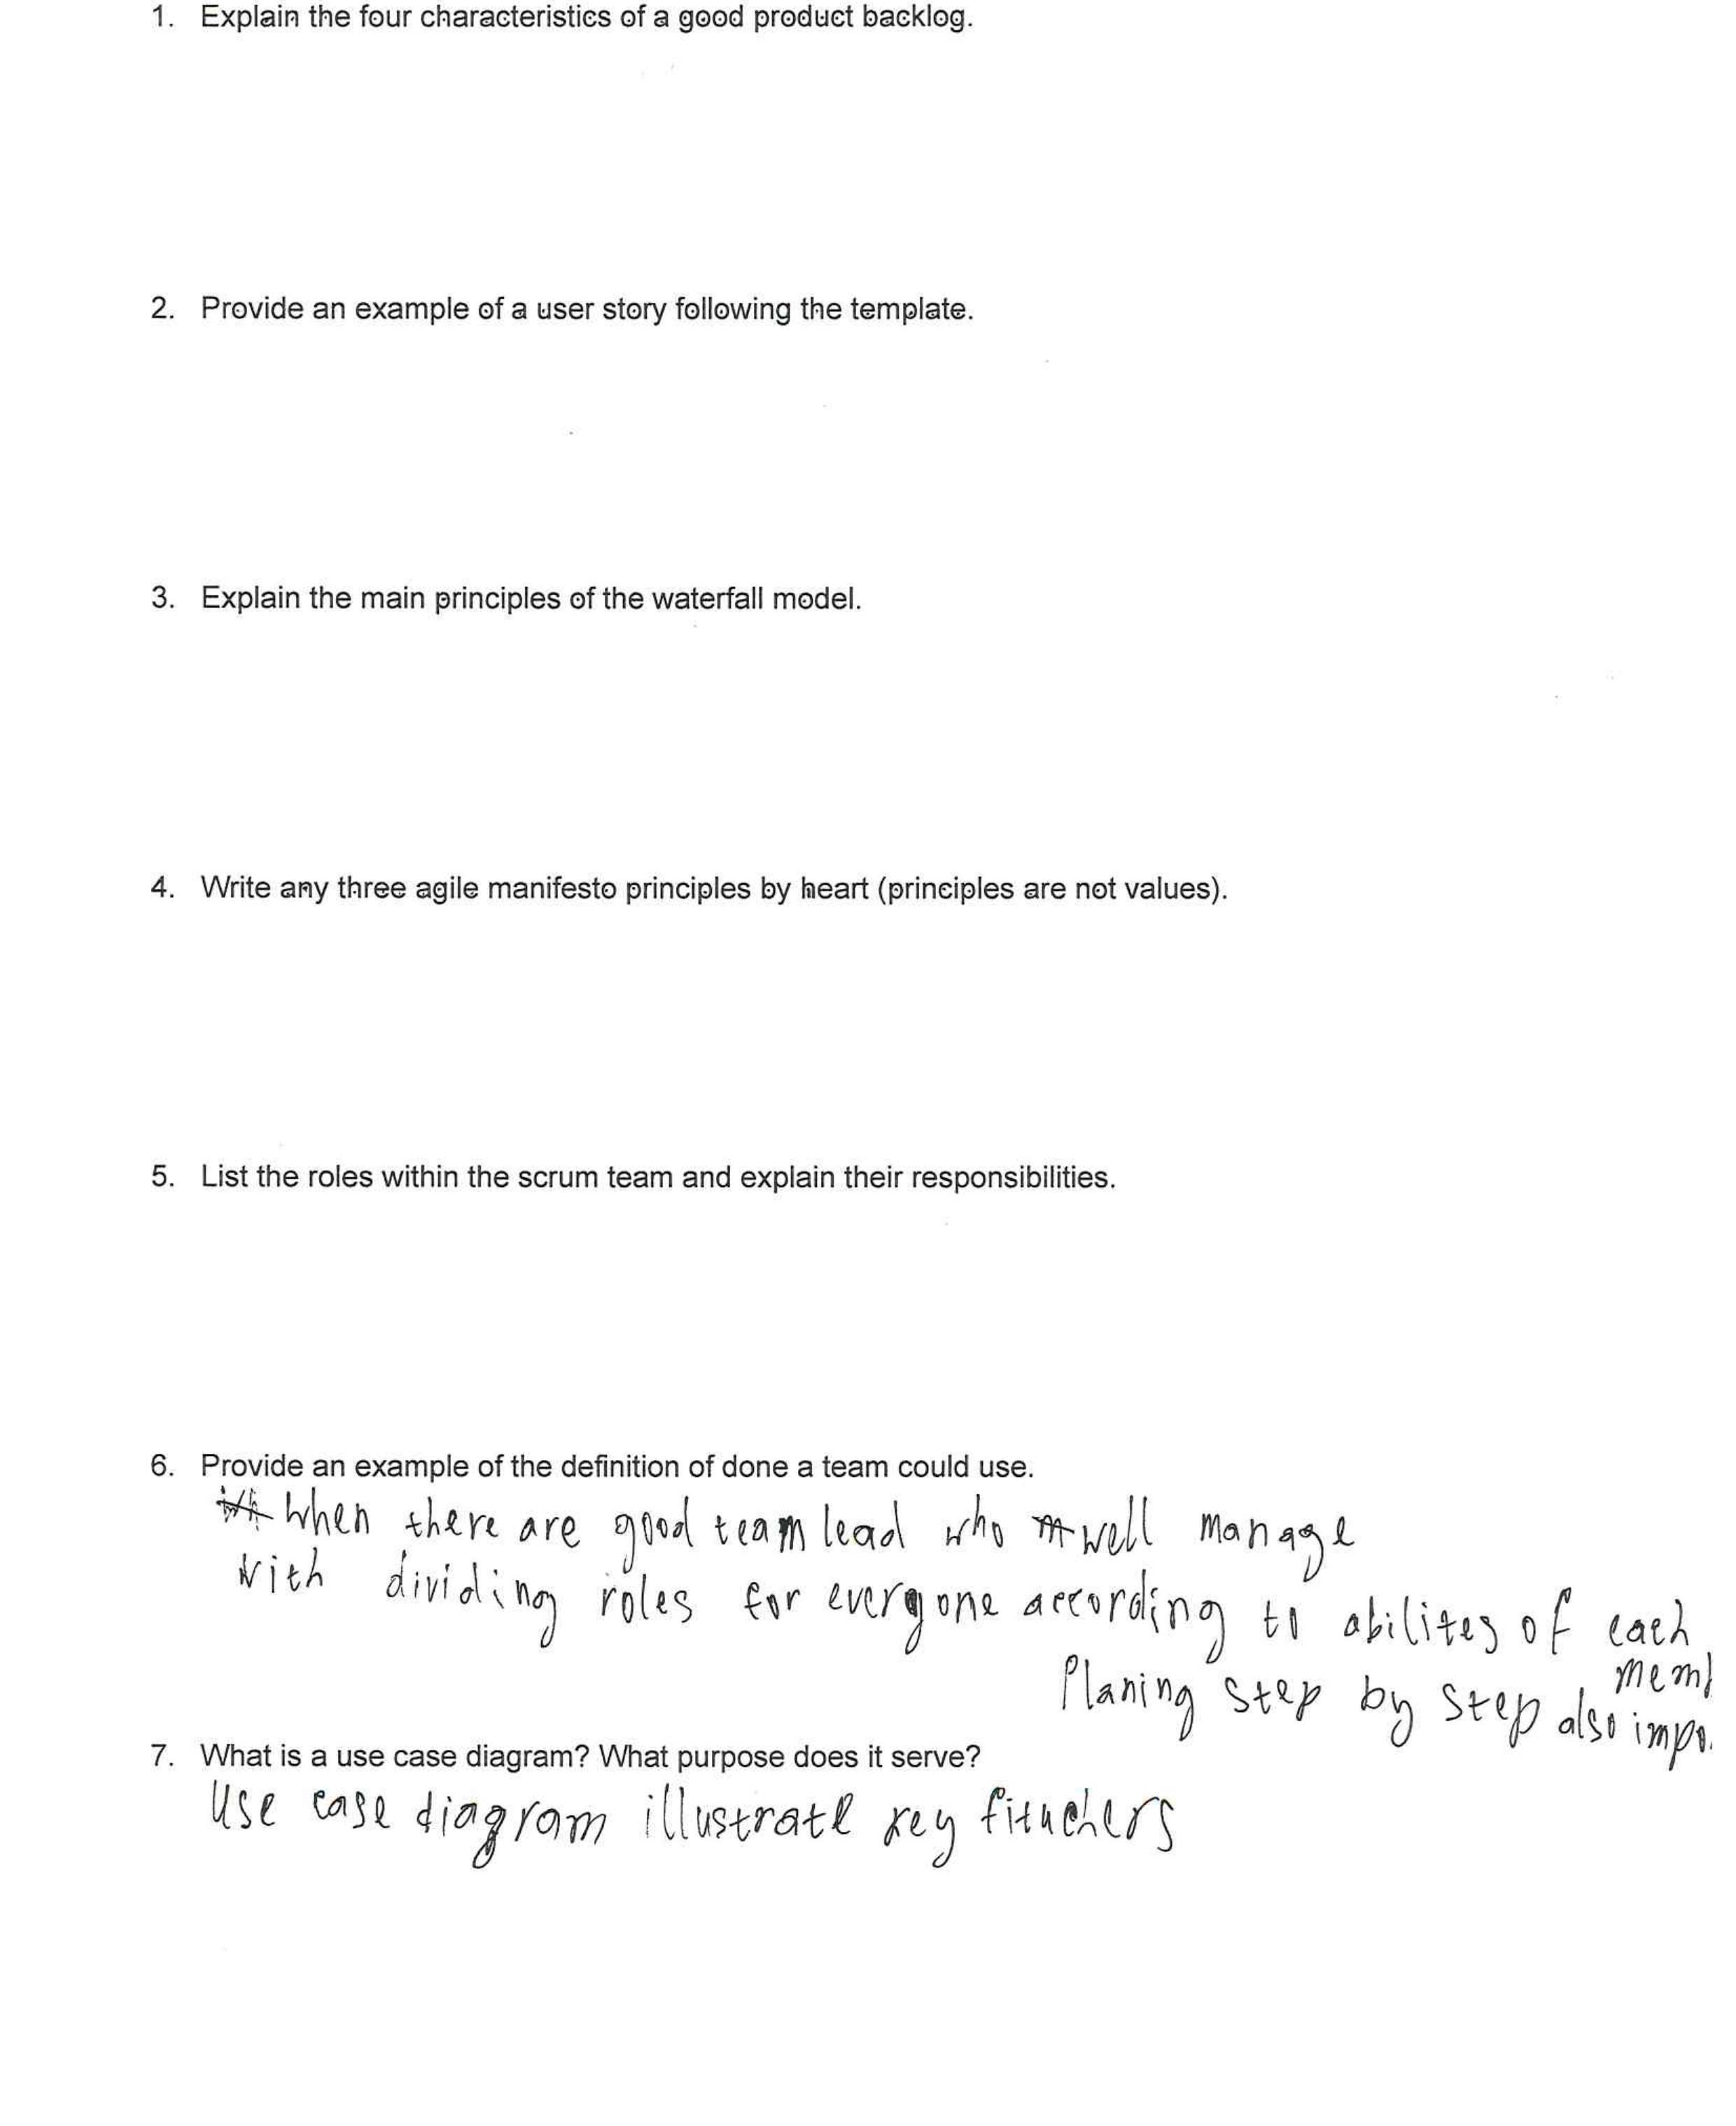 1. Explain the four characteristics of a good product backlog.
2. Provide an example of a user story following the template.
3. Explain the main principles of the waterfall model.
4. Write any three agile manifesto principles by heart (principles are not values).
5. List the roles within the scrum team and explain their responsibilities.
6. Provide an example of the definition of done a team could use.
When there are good team lead who well manage
with dividing roles for everyone according to abilites of each
memb
Planing step by step also impo
7. What is a use case diagram? What purpose does it serve?
Use case diagram illustrate key fituchers